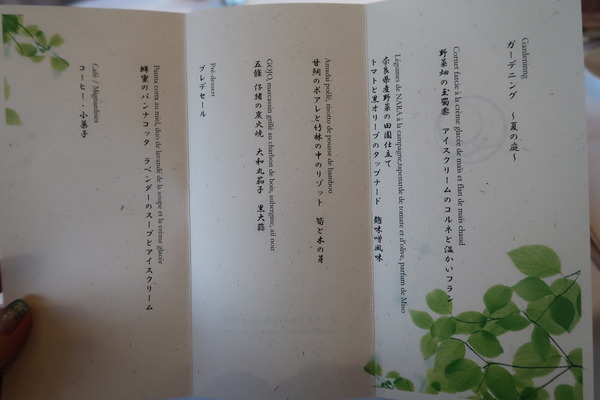 Gardening
ガーデニング　～夏の庭～
Cornet farcie à la crème glacée de maïs et flan de maïs chaud
野菜畑の玉蜀黍　アイスクリームのコルネと温かいフラン
Légumes de NARA à la campagne,tapenarde de tomate et d'olive, parfum de Miso
奈良県産野菜の田園仕立て
トマトと黒オリーブのタップナード　麹味噌風味
Amadai poêlé, risotto de pousse de bambou
甘鯛のポアレと竹林の中のリゾット　筍と木の芽
GOJO, marcassin grillé au charbon de bois, aubergine, ail noir
五條　仔猪の炭火焼　大和丸茄子　黒大蒜
Pré-dessert
プレデセール
Panna cotta au miel, duo de lavande de la soupe et la crème glacée
蜂蜜のパンナコッタ　ラベンダーのスープとアイスクリーム
Café / Mignardises
コーヒー・小菓子